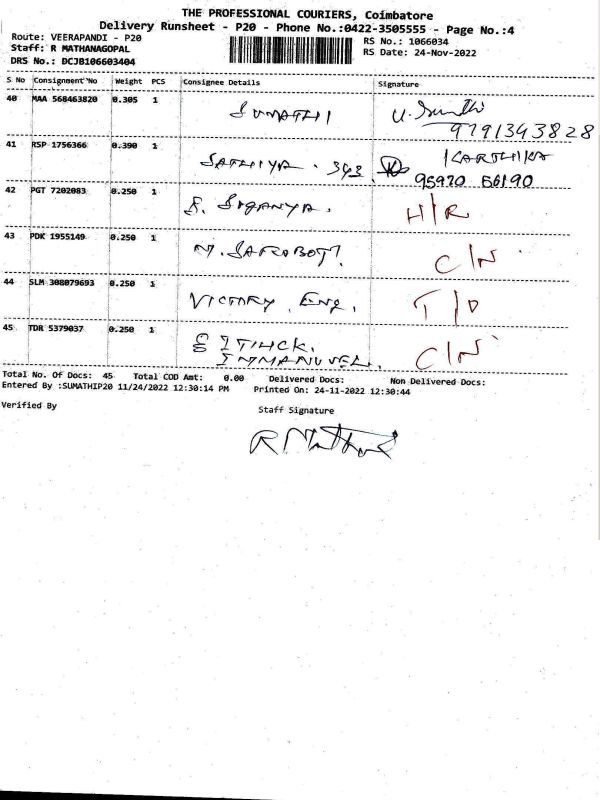 THE PROFESSIONAL COURIERS, Coimbatore
Delivery Runsheet - P20 - Phone No.:0422-3505555 - Page No.:4
Route: VEERAPANDI - P20
Staff: R MATHANAGOPAL
DRS No.: DCJB106603404
RS No.: 1066034
RS Date: 24-Nov-2022
S No Consignment No Weight PCS Consignee Details Signature
40 MAA 568463820 0.305 1 SUMATHI
9791343828
41 RSP 1756366 0.390 1 SATHIYA. 343 KARTHIKA
95970 66190
42 PGT 7202083 0.250 1 H/R
43 PDK 1955149 0.250 1 C/N
44 SLM 308079693 0.250 1 VICTORY Eng, T/D
45 TDR 5379037 0.250 1 C/N
IMMANUVEL.
Total No. Of Docs: 45 Total COD Amt: 0.00 Delivered Docs: Non Delivered Docs:
Entered By :SUMATHIP20 11/24/2022 12:30:14 PM Printed On: 24-11-2022 12:30:44
Verified By
Staff Signature